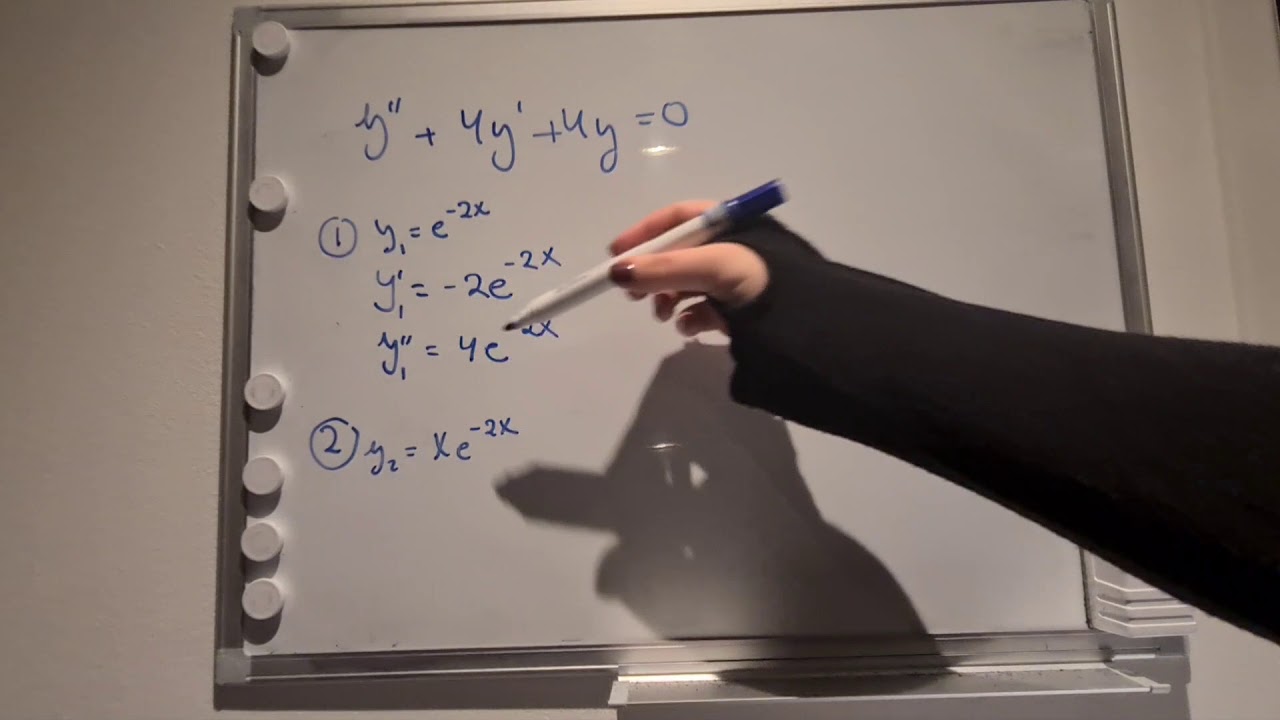 y'' + 4y' + 4y = 0
① y₁ = e^-2x
y₁' = -2e^-2x
y₁'' = 4e^-2x
② y₂ = xe^-2x